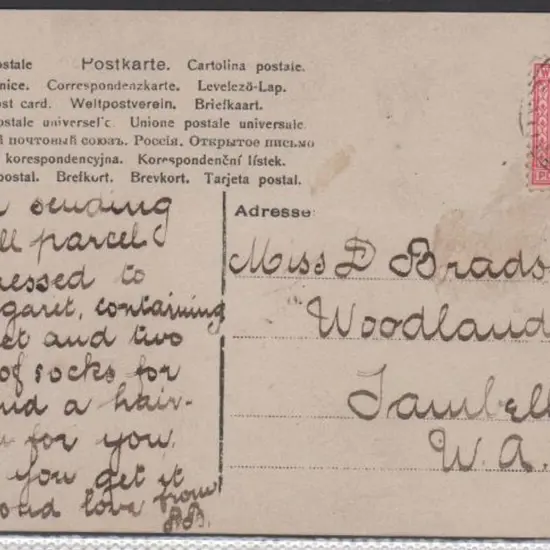 ostale Postkarte. Cartolina postale.
nice. Correspondenzkarte. Levelezö-Lap.
ost card. Weltpostverein. Briefkaart.
ostale universelle. Unione postale universale.
почтовый союзъ. Россія. Открытое письмо
korespondencyjna. Korespondenční lístek.
postal. Brefkort. Brevkort. Tarjeta postal.
sending
ll parcel
ressed to
garet, containing
et and two
of socks for
nd a hair-
for you.
you get it
ond love from
B.
Adresse:
Miss D Brads
Woodland
Tambell
W.A.